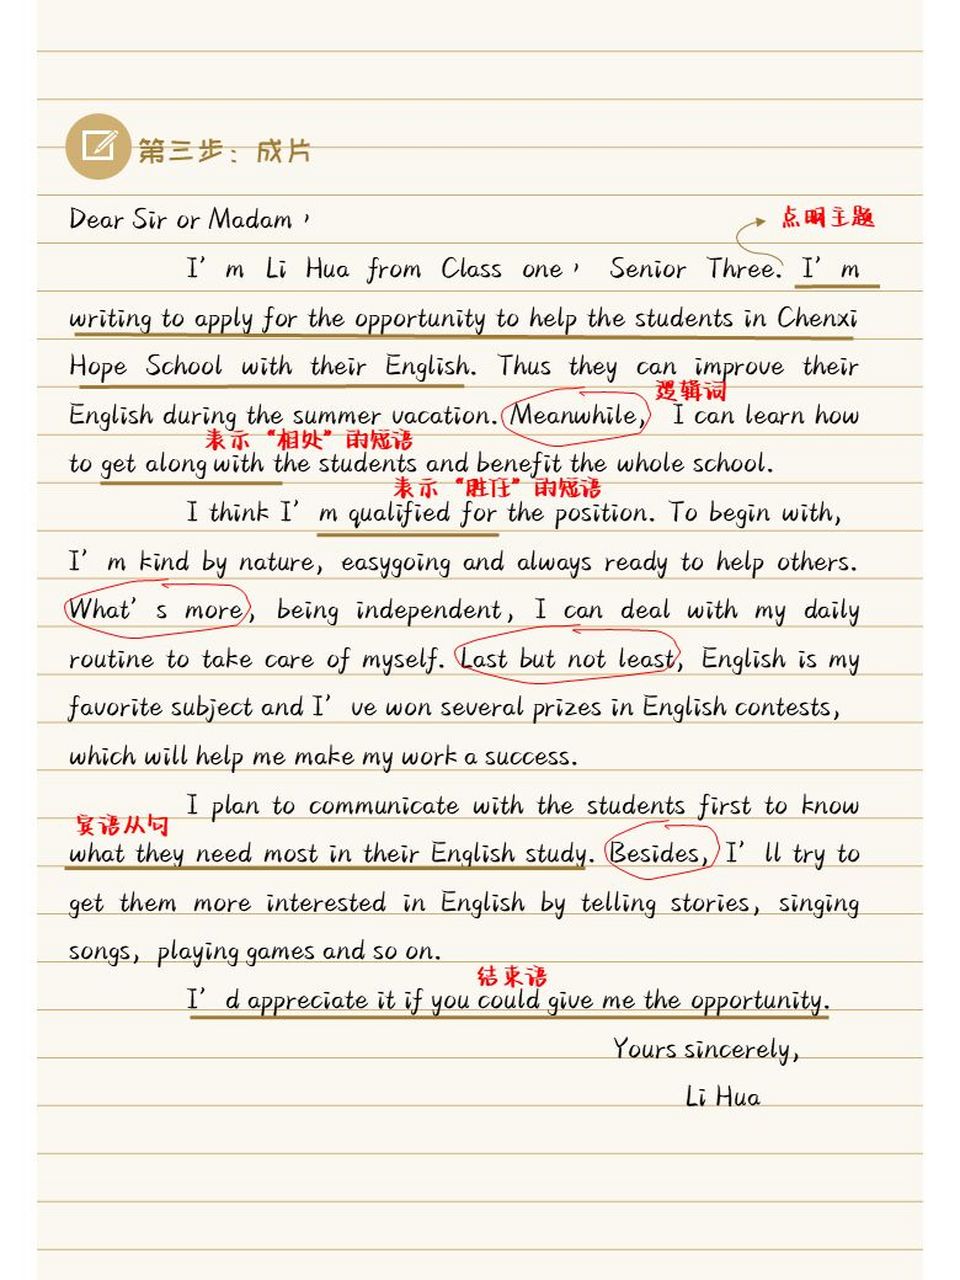 第三步：成片
Dear Sir or Madam，
点明主题
I'm Li Hua from Class one， Senior Three. I'm
writing to apply for the opportunity to help the students in Chenxi
Hope School with their English. Thus they can improve their
逻辑词
English during the summer vacation. Meanwhile, I can learn how
表示“相处”的短语
to get along with the students and benefit the whole school.
表示“胜任”的短语
I think I'm qualified for the position. To begin with,
I'm kind by nature, easygoing and always ready to help others.
What's more, being independent, I can deal with my daily
routine to take care of myself. Last but not least, English is my
favorite subject and I've won several prizes in English contests,
which will help me make my work a success.
I plan to communicate with the students first to know
宾语从句
what they need most in their English study. Besides, I'll try to
get them more interested in English by telling stories, singing
songs, playing games and so on.
结束语
I'd appreciate it if you could give me the opportunity.
Yours sincerely,
Li Hua